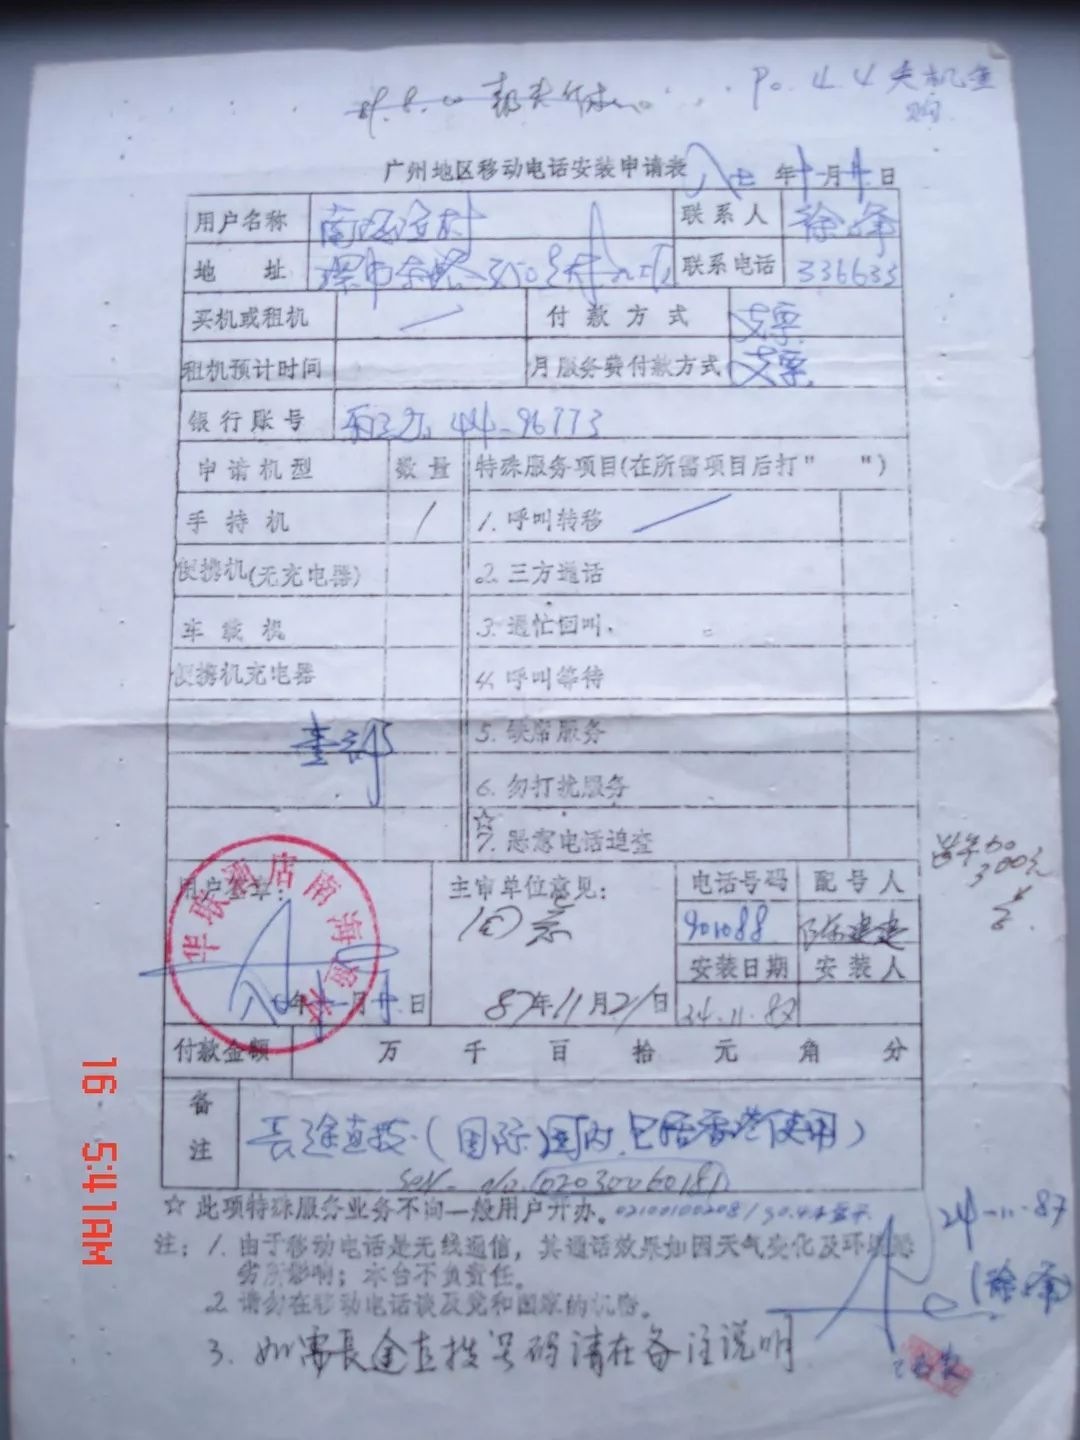 90.4.4 失机重购
广州地区移动电话安装申请表 八七年十一月廿日
用户名称 南海渔村 联系人 徐峰
地 址 联系电话 336633
买机或租机 付款方式 支票
租机预计时间 月服务费付款方式 支票
银行账号 44-96773
申请机型 数量 特殊服务项目(在所需项目后打" ")
手持机 1 1. 呼叫转移
便携机(无充电器) 2. 三方通话
车载机 3. 遇忙回叫
便携机充电器 4. 呼叫等待
壹部 5. 缺席服务
6. 勿打扰服务
☆
7. 恶意电话追查
用户签章: 主审单位意见: 电话号码 配号人
同意 901088 陈建建
安装日期 安装人
八七年十一月廿日 87年11月21日 24.11.87
华联酒店南海渔村
付款金额 万 千 百 拾 元 角 分
备注 長途直拨(国际国内,包括香港使用)
No. 02030060181
☆ 此项特殊服务业务不向一般用户开办。
注: 1. 由于移动电话是无线通信,其通话效果如因天气变化及环境恶
劣所影响;本台不负责任。
2. 请勿在移动电话谈及党和国家的机密。
3. 如需長途直拨号码请在备注说明
24-11-87
(徐峰)
16 5:41AM